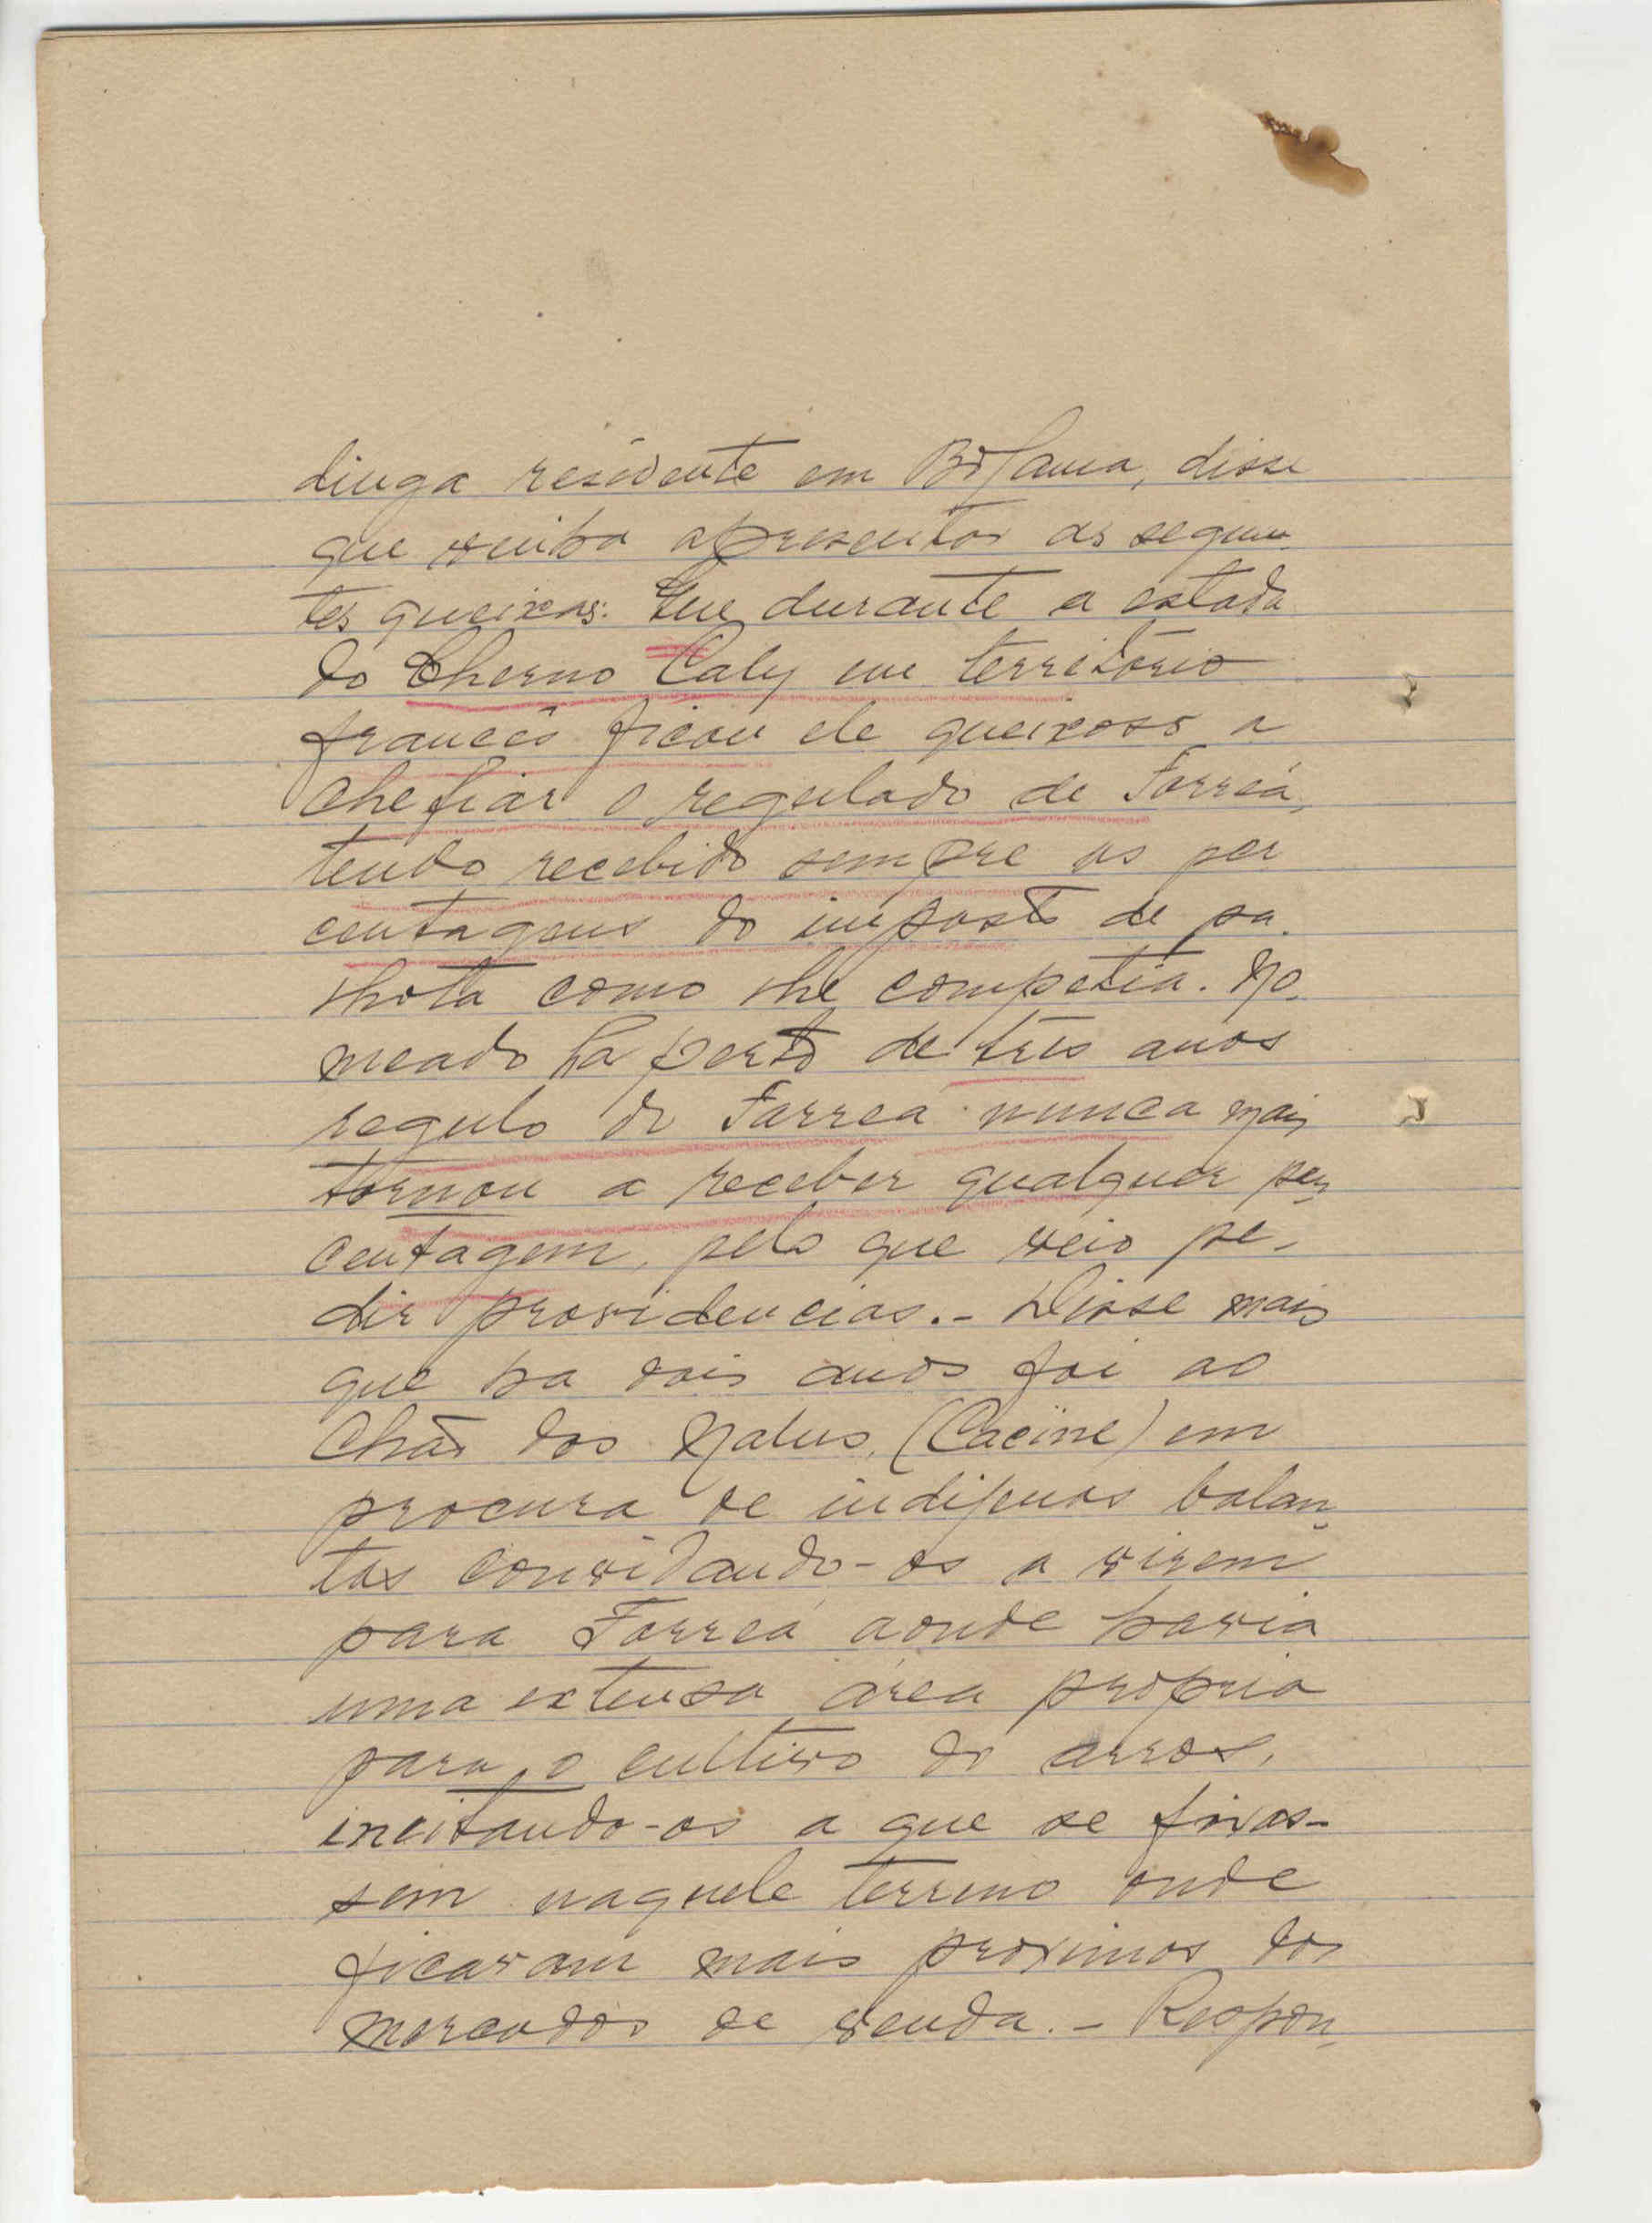 dinga residente em Bolama, disse
que vinha apresentar as seguin
tes queixas: Que durante a estada
do Cherno Caly em território
francês ficou ele queixoso a
chefiar o regulado de Forreá,
tendo recebido sempre as per
centagens do imposto de pa
lhota como lhe competia. No
meado ha perto de três anos
regulo do Forreá nunca mais
tornou a receber qualquer per
centagem, pelo que veio pe-
dir providencias.- Disse mais
que ha dois anos foi ao
Chão dos Nalus, (Cacine) em
procura de indigenas balan
tas convidando-os a virem
para Forreá aonde havia
uma extensa área propria
para o cultivo do arroz,
incitando-os a que se fixas-
sem naquele terreno onde
ficavam mais proximos dos
mercados de venda.- Respon